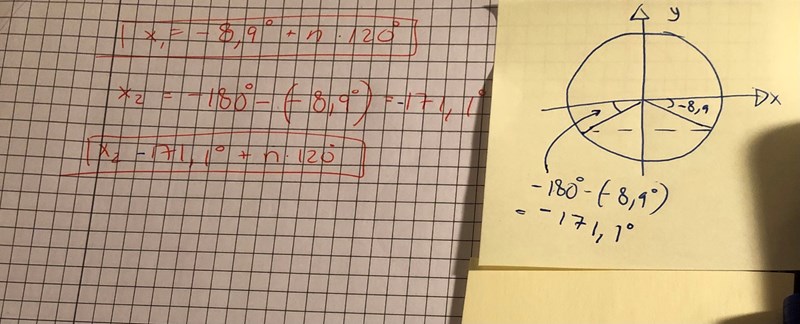 x₁ = -8,9° + n · 120°
x₂ = -180° - (-8,9°) = -171,1°
x₂ - 171,1° + n · 120°
y
x
-8,9
-180° - (-8,9°)
= -171,1°